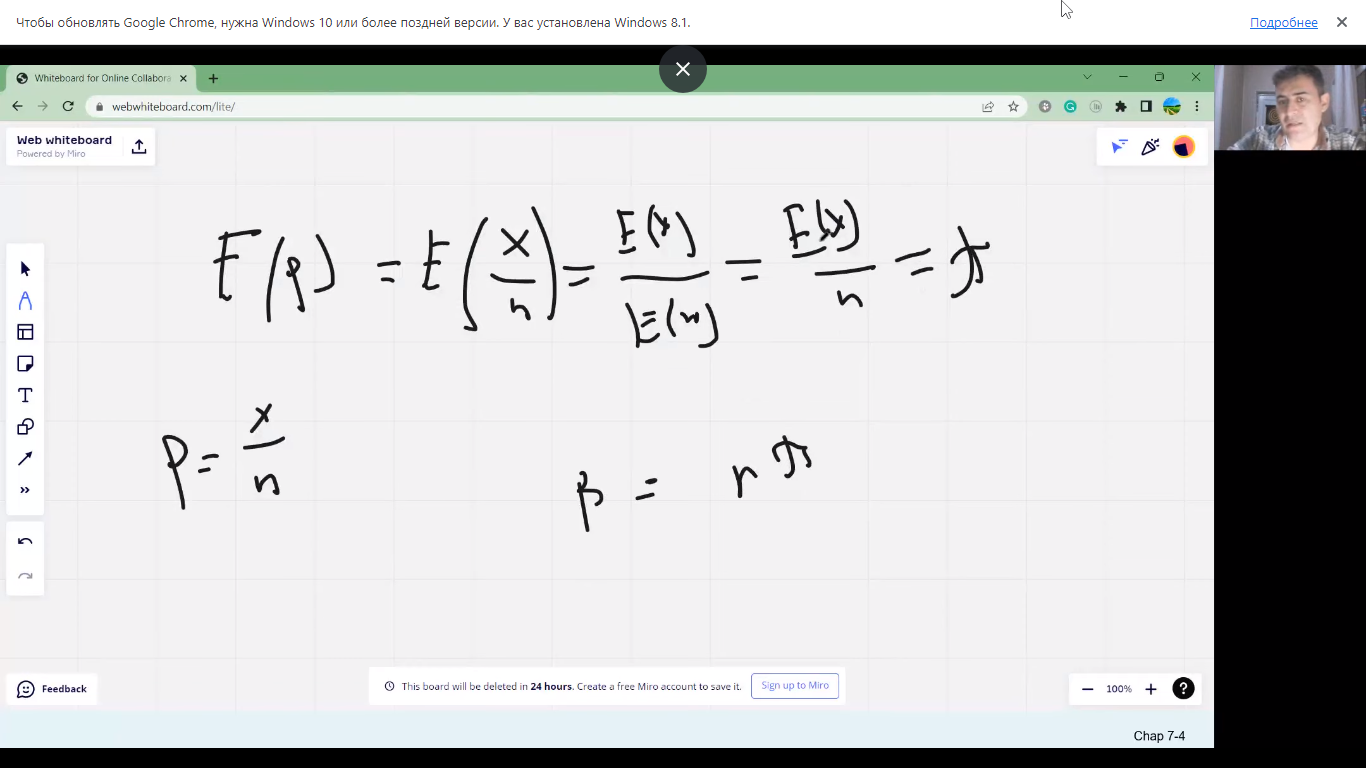 Чтобы обновлять Google Chrome, нужна Windows 10 или более поздней версии. У вас установлена Windows 8.1.
Подробнее
Whiteboard for Online Collabora
webwhiteboard.com/lite/
Web whiteboard
Powered by Miro
E(p) = E(x/n) = E(x)/E(n) = E(x)/n = π
p = x/n
n π
Feedback
This board will be deleted in 24 hours. Create a free Miro account to save it.
Sign up to Miro
100%
Chap 7-4